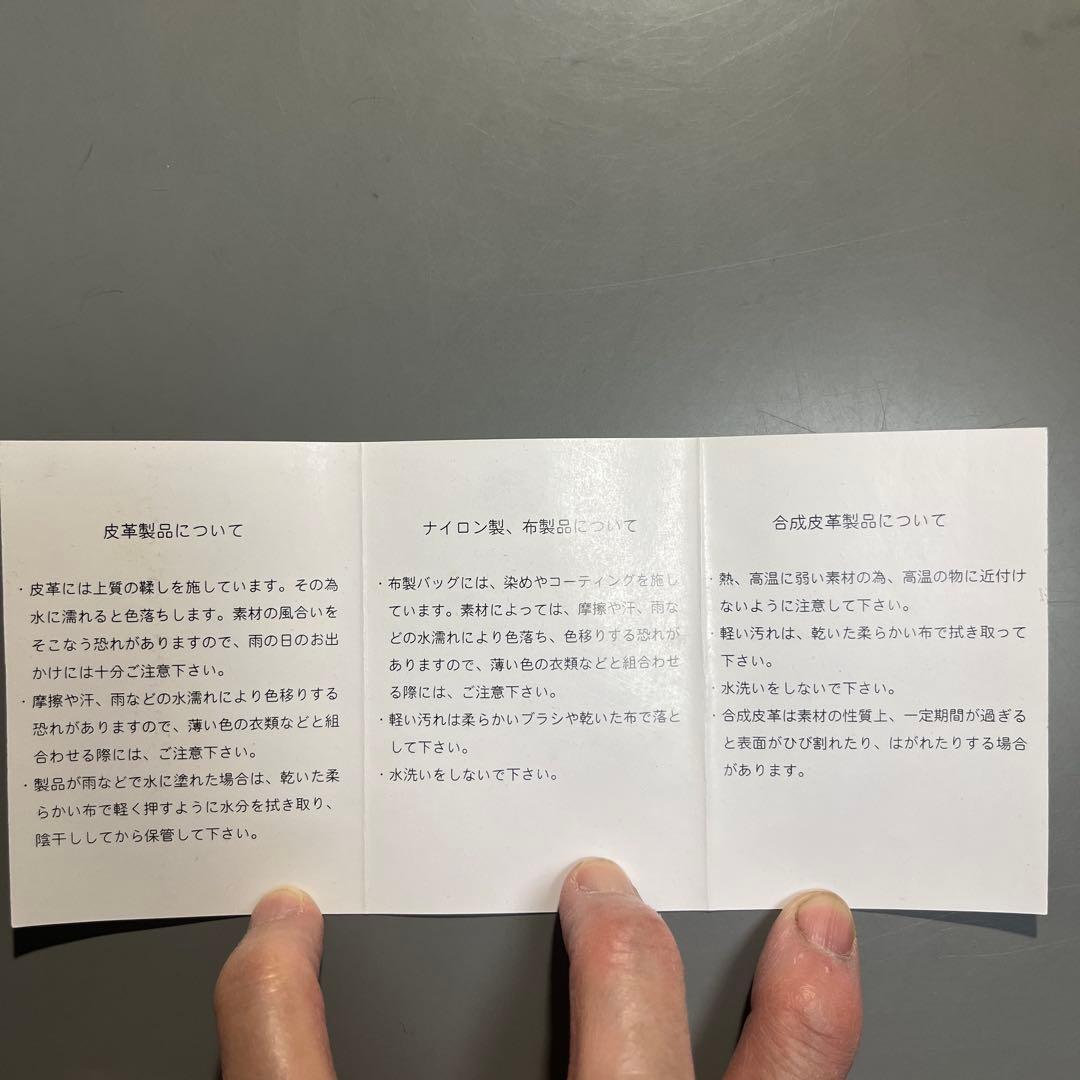 皮革製品について
・皮革には上質の鞣しを施しています。その為
水に濡れると色落ちします。素材の風合いを
そこなう恐れがありますので、雨の日のお出
かけには十分ご注意下さい。
・摩擦や汗、雨などの水濡れにより色移りする
恐れがありますので、薄い色の衣類などと組
合わせる際には、ご注意下さい。
・製品が雨などで水に塗れた場合は、乾いた柔
らかい布で軽く押すように水分を拭き取り、
陰干ししてから保管して下さい。
ナイロン製、布製品について
・布製バッグには、染めやコーティングを施し
ています。素材によっては、摩擦や汗、雨な
どの水濡れにより色落ち、色移りする恐れが
ありますので、薄い色の衣類などと組合わせ
る際には、ご注意下さい。
・軽い汚れは柔らかいブラシや乾いた布で落と
して下さい。
・水洗いをしないで下さい。
合成皮革製品について
・熱、高温に弱い素材の為、高温の物に近付け
ないように注意して下さい。
・軽い汚れは、乾いた柔らかい布で拭き取って
下さい。
・水洗いをしないで下さい。
・合成皮革は素材の性質上、一定期間が過ぎる
と表面がひび割れたり、はがれたりする場合
があります。